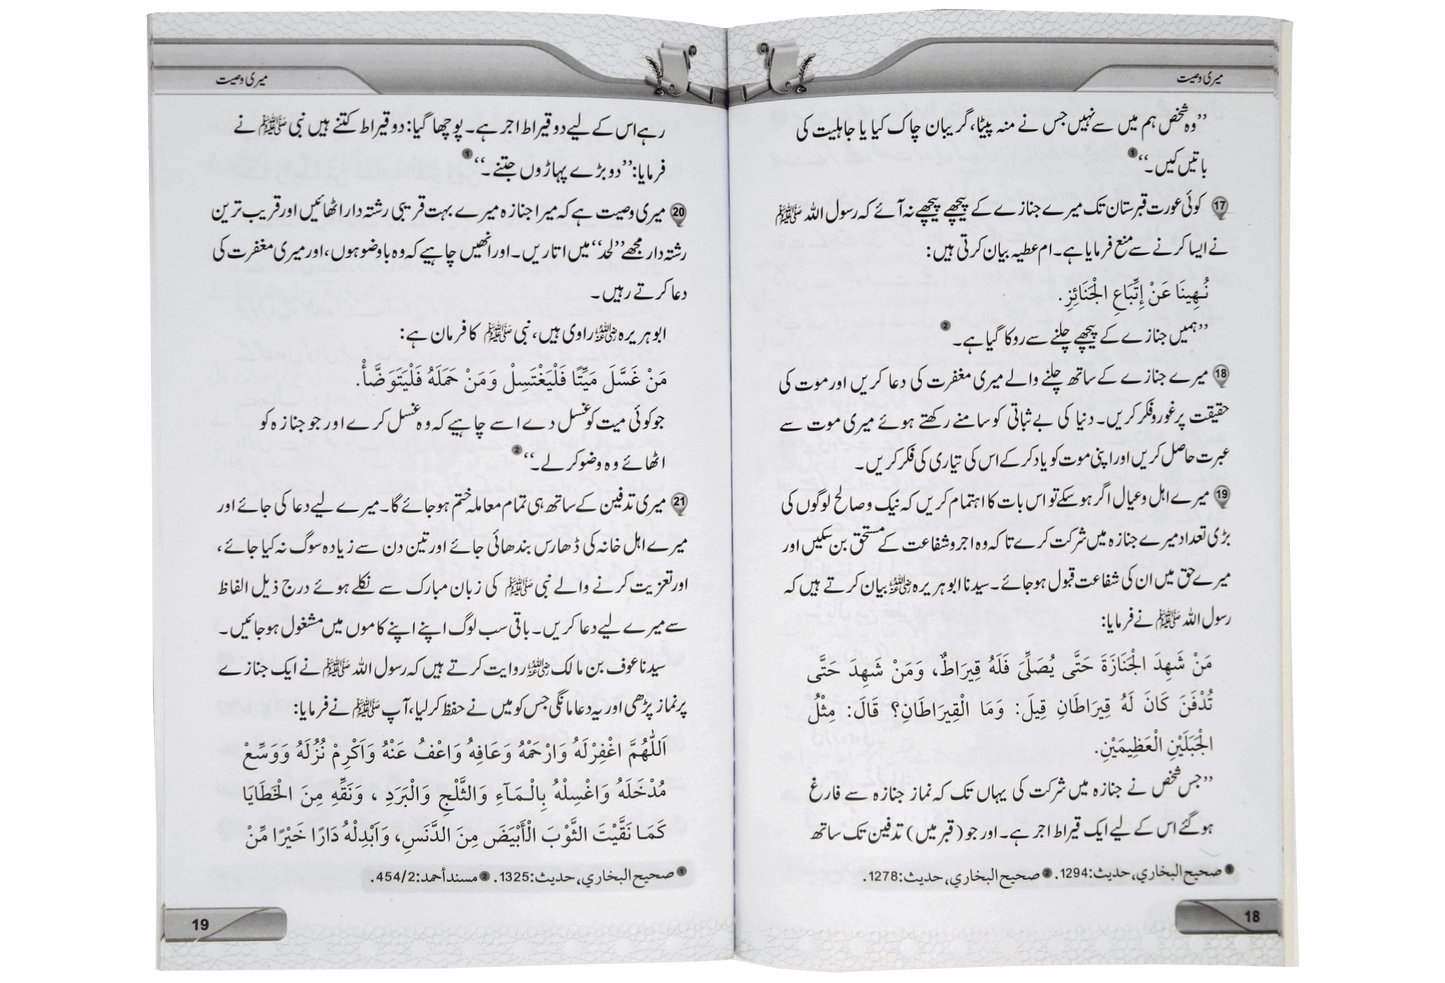 میری وصیت
’’وہ شخص ہم میں سے نہیں جس نے منہ پیٹا، گریبان چاک کیا یا جاہلیت کی
باتیں کیں۔‘‘ 1
17 کوئی عورت قبرستان تک میرے جنازے کے پیچھے پیچھے نہ آئے کہ رسول اللہ ﷺ
نے ایسا کرنے سے منع فرمایا ہے۔ ام عطیہ بیان کرتی ہیں:
نُهِينَا عَنْ إِتِّبَاعِ الْجَنَائِزِ.
’’ہمیں جنازے کے پیچھے چلنے سے روکا گیا ہے۔ 2
18 میرے جنازے کے ساتھ چلنے والے میری مغفرت کی دعا کریں اور موت کی
حقیقت پر غور و فکر کریں۔ دنیا کی بے ثباتی کو سامنے رکھتے ہوئے میری موت سے
عبرت حاصل کریں اور اپنی موت کو یاد کرکے اس کی تیاری کی فکر کریں۔
19 میرے اہل و عیال اگر ہوسکے تو اس بات کا اہتمام کریں کہ نیک و صالح لوگوں کی
بڑی تعداد میرے جنازہ میں شرکت کرے تاکہ وہ اجر و شفاعت کے مستحق بن سکیں اور
میرے حق میں ان کی شفاعت قبول ہوجائے۔ سیدنا ابو ہریرہ رضی اللہ عنہ بیان کرتے ہیں کہ
رسول اللہ ﷺ نے فرمایا:
مَنْ شَهِدَ الْجَنَازَةَ حَتَّى يُصَلِّىَ فَلَهُ قِيرَاطٌ، وَمَنْ شَهِدَ حَتَّى
تُدْفَنَ كَانَ لَهُ قِيرَاطَانِ قِيلَ: وَمَا الْقِيرَاطَانِ؟ قَالَ: مِثْلُ
الْجَبَلَيْنِ الْعَظِيمَيْنِ.
’’جس شخص نے جنازہ میں شرکت کی یہاں تک کہ نماز جنازہ سے فارغ
ہوگئے اس کے لیے ایک قیراط اجر ہے۔ اور جو (قبر میں) تدفین تک ساتھ
1 صحيح البخاري، حديث: 1294. 2 صحيح البخاري، حديث: 1278.
18
میری وصیت
رہے اس کے لیے دو قیراط اجر ہے۔ پوچھا گیا: دو قیراط کتنے ہیں نبی ﷺ نے
فرمایا: ’’دو بڑے پہاڑوں جتنے۔‘‘ 1
20 میری وصیت ہے کہ میرا جنازہ میرے بہت قریبی رشتہ دار اٹھائیں اور قریب ترین
رشتہ دار مجھے ’’لحد‘‘ میں اتاریں۔ اور انھیں چاہیے کہ وہ باوضو ہوں، اور میری مغفرت کی
دعا کرتے رہیں۔
ابو ہریرہ رضی اللہ عنہ راوی ہیں، نبی ﷺ کا فرمان ہے:
مَنْ غَسَّلَ مَيِّتًا فَلْيَغْتَسِلْ وَمَنْ حَمَلَهُ فَلْيَتَوَضَّأْ.
جو کوئی میت کو غسل دے اسے چاہیے کہ وہ غسل کرے اور جو جنازہ کو
اٹھائے وہ وضو کرلے۔‘‘ 2
21 میری تدفین کے ساتھ ہی تمام معاملہ ختم ہوجائے گا۔ میرے لیے دعا کی جائے اور
میرے اہل خانہ کی ڈھارس بندھائی جائے اور تین دن سے زیادہ سوگ نہ کیا جائے،
اور تعزیت کرنے والے نبی ﷺ کی زبان مبارک سے نکلے ہوئے درج ذیل الفاظ
سے میرے لیے دعا کریں۔ باقی سب لوگ اپنے اپنے کاموں میں مشغول ہوجائیں۔
سیدنا عوف بن مالک رضی اللہ عنہ روایت کرتے ہیں کہ رسول اللہ ﷺ نے ایک جنازے
پر نماز پڑھی اور یہ دعا مانگی جس کو میں نے حفظ کرلیا، آپ ﷺ نے فرمایا:
اَللّٰهُمَّ اغْفِرْلَهُ وَارْحَمْهُ وَعَافِهِ وَاعْفُ عَنْهُ وَاَكْرِمْ نُزُلَهُ وَوَسِّعْ
مُدْخَلَهُ وَاغْسِلْهُ بِالْمَآءِ وَالثَّلْجِ وَالْبَرَدِ ، وَنَقِّهِ مِنَ الْخَطَايَا
كَمَا نَقَّيْتَ الثَّوْبَ الْأَبْيَضَ مِنَ الدَّنَسِ، وَاَبْدِلْهُ دَارًا خَيْرًا مِّنْ
1 صحيح البخاري، حديث: 1325. 2 مسند أحمد: 454/2.
19